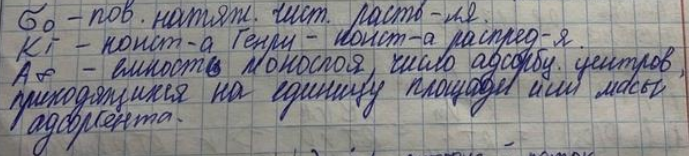 σ₀ - пов. натяж. чист. раств-ля.
КГ - конст-а Генри - конст-а распред-я.
A∞ - емкость монослоя, число адсорбц. центров,
приходящихся на единицу площади или массы
адсорбента.